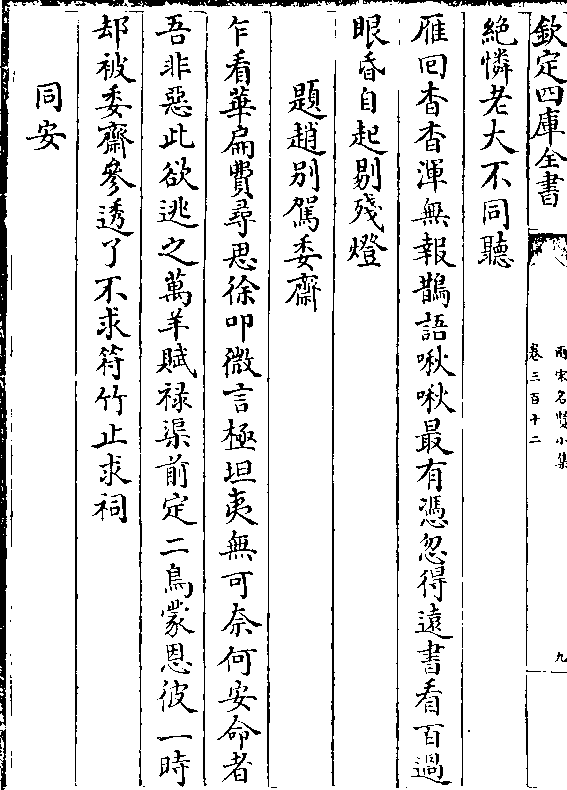 欽定四庫全書
兩宋名賢小集
卷三百十二
九
絶憐老大不同聽
雁回杳杳渾無報鵲語啾啾最有憑忽得遠書看百過
眼昏自起剔殘燈
題趙别駕委齋
乍看華扁費尋思徐叩微言極坦夷無可奈何安命者
吾非惡此欲逃之萬羊賦禄渠前定二鳥蒙恩彼一時
却被委齋參透了不求符竹止求祠
同安